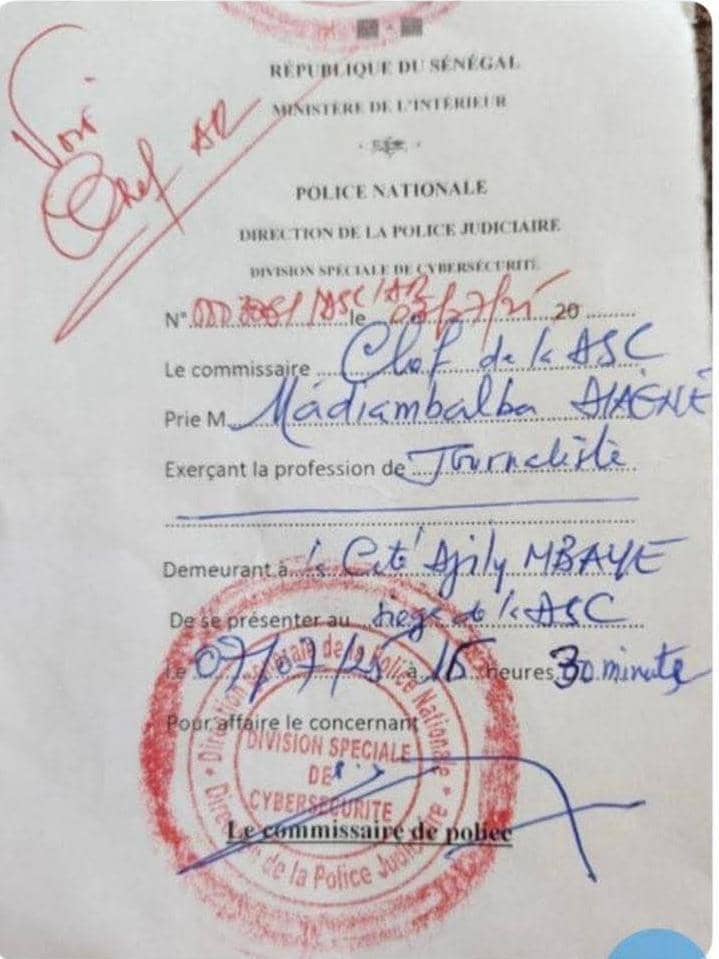 RÉPUBLIQUE DU SÉNÉGAL
MINISTÈRE DE L'INTÉRIEUR
Voir
Chef AR
POLICE NATIONALE
DIRECTION DE LA POLICE JUDICIAIRE
DIVISION SPÉCIALE DE CYBERSÉCURITÉ
N°. /ASC/AR le /07/25 20
Le commissaire Chef de la ASC
Prie M. Madiambalba DIAGNE
Exerçant la profession de Journaliste
Demeurant à la Cité Djily MBAYE
De se présenter au siège de la ASC
Le 07/07/25 à 15 heures 30 minute
Pour affaire le concernant
Le commissaire de police
Direction de la Police Judiciaire
DIVISION SPECIALE
DE
CYBERSECURITE
de la Police Nationale